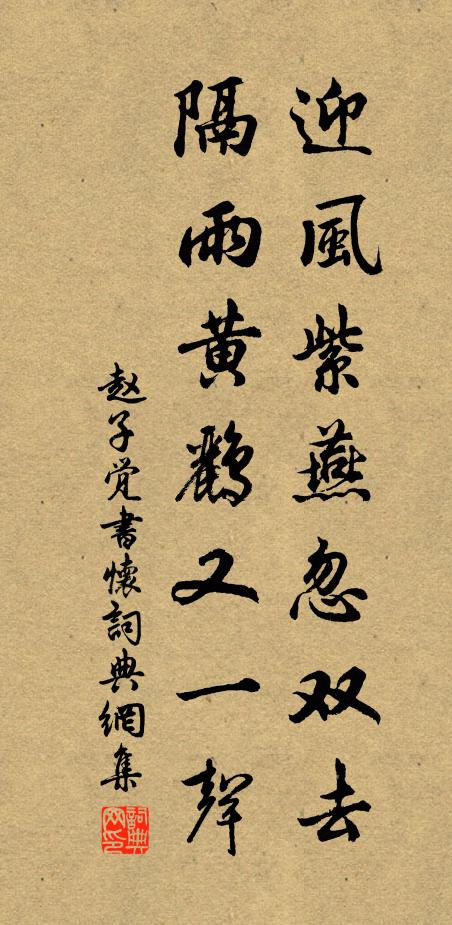 迎風紫燕忽双去
隔雨黄鸝又一聲
赵子觉書懷詞典網集
詞典网印